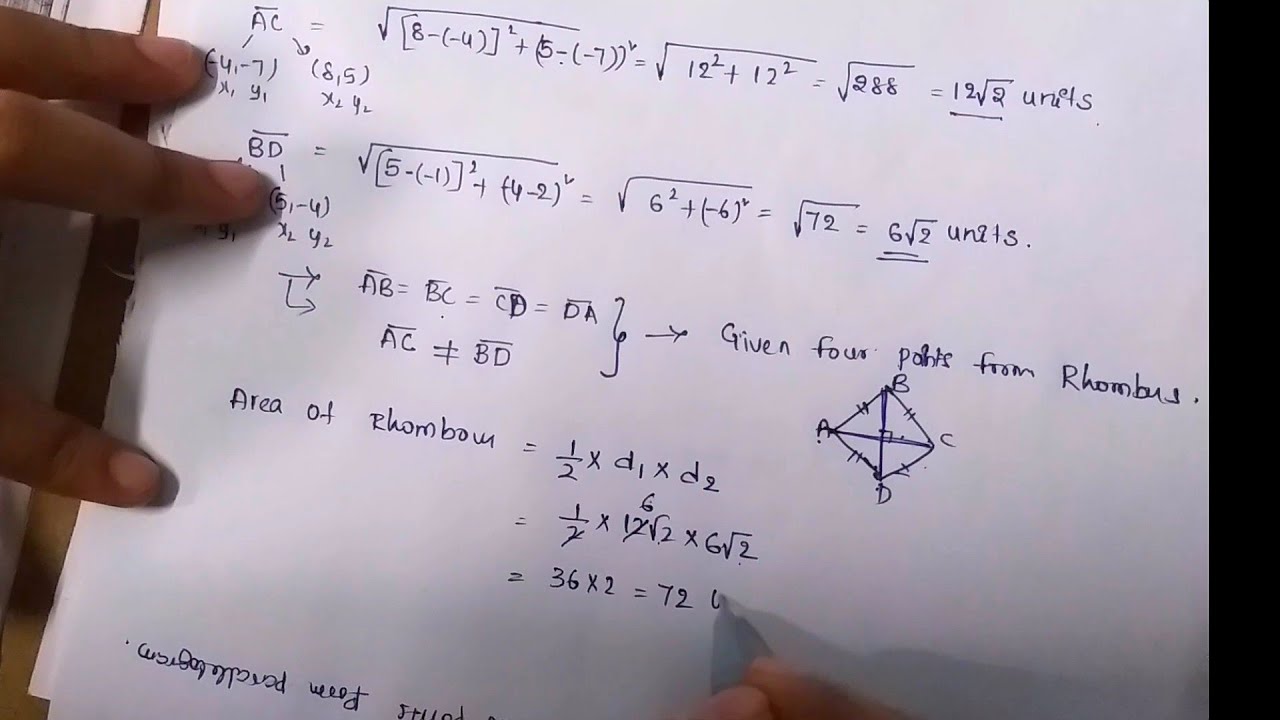 AC = √[8-(-4)]² + (5-(-7))² = √12² + 12² = √288 = 12√2 units.
(-4,-7) (8,5)
x₁ y₁ x₂ y₂
BD = √[5-(-1)]² + (-4-2)² = √6² + (-6)² = √72 = 6√2 units.
(5,-4)
y₁ x₂ y₂
AB = BC = CD = DA
AC ≠ BD
→ Given four points from Rhombus.
B
A C
D
Area of Rhombow = 1/2 × d₁ × d₂
6
= 1/2 × 12√2 × 6√2
= 36×2 = 72
points form paralelogram.